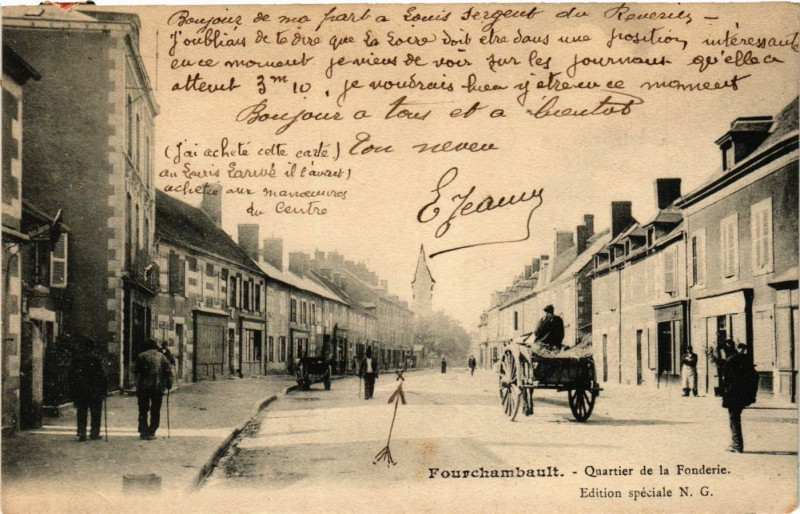 Bonjour de ma part a Louis Sergent du
J'oubliais de te dire que la Loire doit etre dans une position intéressante
en ce moment je viens de voir sur les journaux qu'elle a
atteint 3m10, je voudrais bien y etre en ce moment
Bonjour a tous et a bientot
Ton neveu
E Jeanny
(J'ai acheté cette carte)
au Louis il l'avait
acheté aux manoeuvres
du Centre
Fourchambault. - Quartier de la Fonderie.
Edition spéciale N. G.